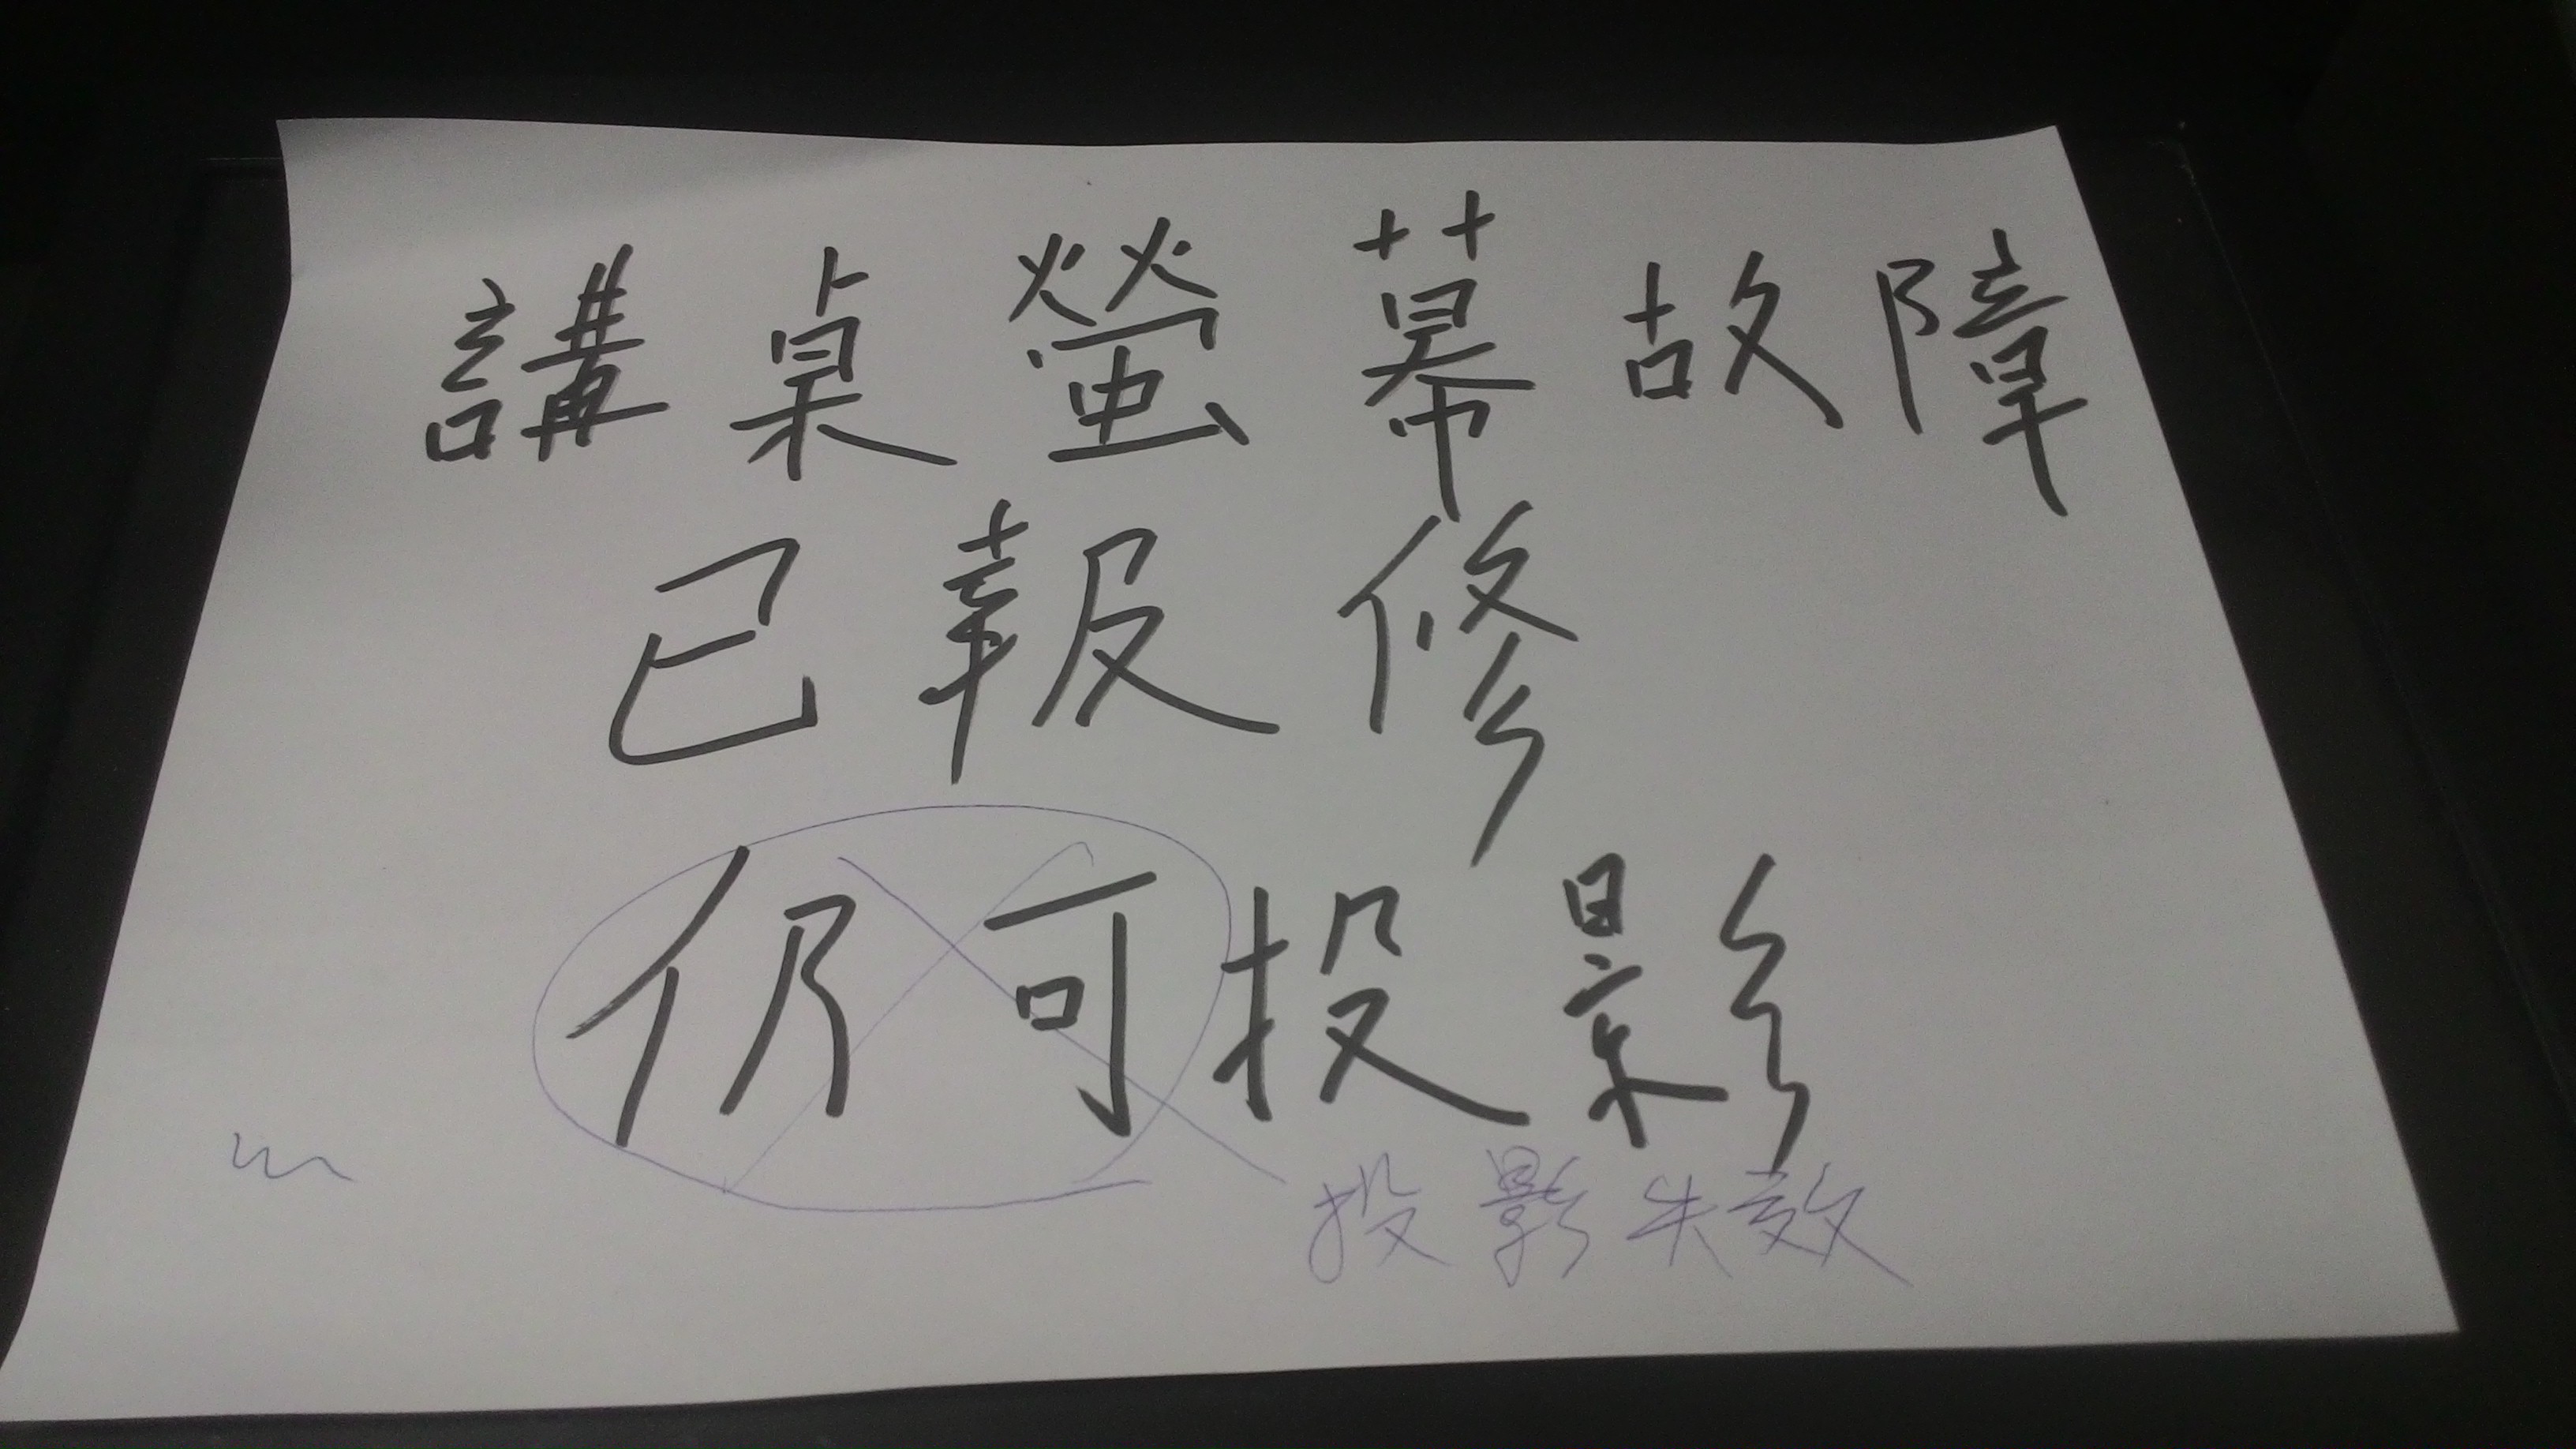 講桌螢幕故障
已報修
仍可投影
投影失效